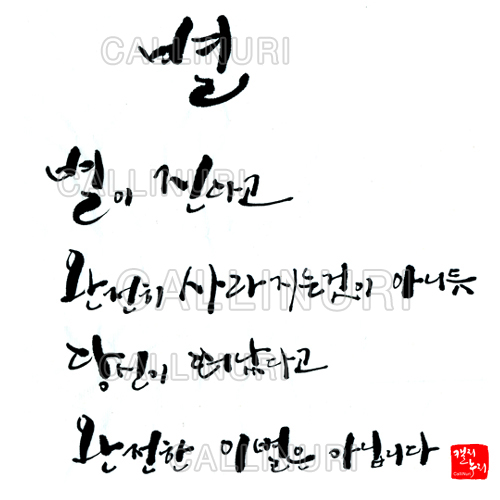 별
CALLINURI
별이 진다고
CALLINURI
완전히 사라지는것이 아니듯
CALLINURI
당신이 떠났다고
CALLINURI
완전한 이별은 아닙니다
CALLINURI
캘리
누리
CalliNuri